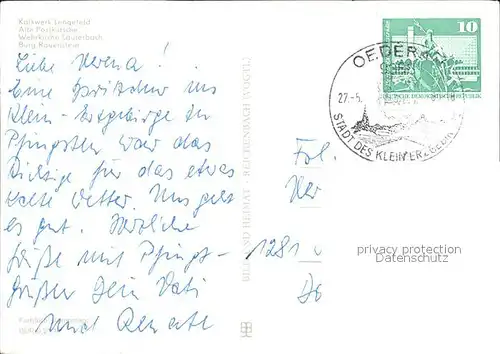 Kalkwerk Lengefeld
Alte Postkutsche
Wehrkirche Lauterbach
Burg Rauenstein
Liebe Verena!
Eine Bari tscher ins
Klein-Erzgebirge zu
Pfingsten war das
Richtige für das etwas
kalte Wetter. Uns geht
es gut. Herzliche
Grüße mit Pfingst-
grüßen Dein Vati
und Renate
BILD UND HEIMAT · REICHENBACH (VOGTL)
10
DEUTSCHE DEMOKRATISCHE REPUBLIK
OEDERAN
27.-5.
STADT DES KLEIN-ERZGEBIRGE
Frl.
Ver
1281
privacy protection
Datenschutz